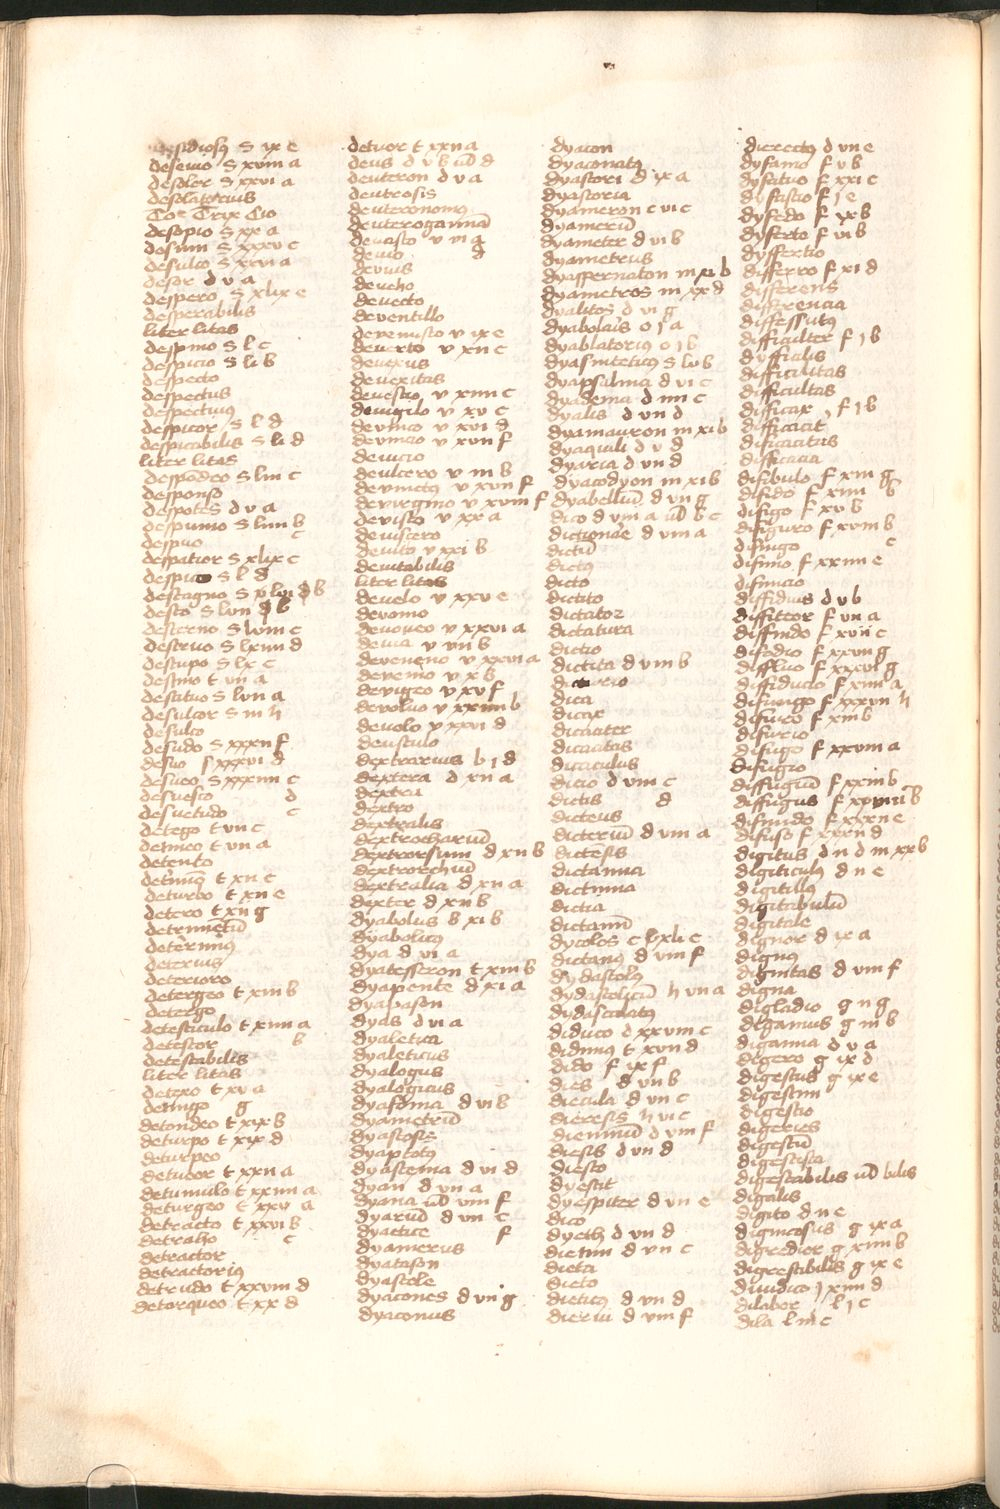 desidiosꝰ S ix e
desenio S xviii a
desoler S xxvi a
desolatorius
Toꝛ Trix Cio
desopio S xx a
desum S xxxv c
desulco S xxvi a
desor d v a
despero S xlix e
desperabilis
liter litas
despino S l c
despicio S li b
despecto
despectus
despectiuꝰ
despicor S l d
despicabilis S li d
liter litas
despōdeo S liii c
desponso
despotes d v a
despumo S liiii b
despuo c
despatior S xlix c
S l d
destagno S
desto S lvii
desterno S lviii c
destruo S lxiiii d
destupo S lx c
desino t vii a
desatuo S lvii a
desultor S iii h
desulto
desudo S xxxii f
desuo S xxxvi d
desueo S xxxiiii c
desuesco d
desuetudo c
detego t vii c
detineo t vii a
detento
t xii c
deturbo t xii e
detero t xii g
detrimētū
deterimꝰ
deterius
deterioro
detergeo t xiii b
detergo
detesticulo t xiiii a
detestor b
detestabilis
liter litas
detexo t xv a
detingo g
detondeo t xix b
deturpo t xix d
deturpeo
detueor t xxii a
detumulo t xxiiii a
deturgeo t xxv a
detracto t xxvi b
detraho c
detractor
detractoriꝰ
detrudo t xxviii d
detorqueo t xx d
detuor t xxii a
deus d v b ūd d
deuteron d v a
deutrosis
deuteronomꝰ
deuterogamiā
deuasto v iii
deuio d
deuius
deueho
deuecto
deuentillo
deuenusto v ix e
deuerto v xii c
deuexus
deuexitas
deuestio v xiiii c
deuigilo v xv c
deuinco v xvi d
deuincio v xvii f
deuicio
deulcero v iii b
deuinctꝰ v xvii f
deuirgino v xviii f
deuisto v xx a
deuiscero
deuito v xxi b
deuitabilis
liter litas
deuelo v xxv e
deuomo
deuoueo v xxvi a
deuia v viii b
deueneno v xxvi a
deuenio v x b
deuigeo v xv f
deuoluo v xxiiii b
deuolo v xxvi d
deustulo
dextrarius b i d
dextera d xii a
dextra
dextro
dextralis
dextrocheriū
dextrorsum d xii b
dextrorchiū
dextralia d xii a
dexter d xii b
dyabolus b xi b
dyabolicꝰ
dya d vi a
dyatesseron t xiii b
dyapente d xi a
dyapason
dyas d vi a
dyaletica
dyaleticus
dyalogus
dyalogicus
dyafoma d vi b
dyametriū
dyastosis
dyaptotꝰ
dyastema d vi d
dyan d vii a
dyana ūd viii f
dyariū d vii c
dyactice f
dyamerus
dyatason
dyastole
dyacones d vii g
dyaconus
dyacon
dyaconatꝰ
dyastori d ix a
dyastoria
dyameron c vi c
dyameriū
dyameter d vi b
dyametrus
dyaffernaton m xi b
dyametros m xx d
dyalitos d vi g
dyabolais o i a
dyablatorius o i b
dyasinteticꝰ S lv b
dyapsalma d vi c
dyadema d iiii c
dyalis d vii d
dyamauron m xi b
dyaquili d v d
dyaria d vii d
dyacodyon m xi b
dyabelliū d vii g
dico d viii a ūd b c
dictionāe d viii a
dictū
dictꝰ
dicto
dictito
dictator
dictatura
dictio
dictita d viii b
dica
dicax
dicaciter
dicacitas
dicaculus
dicio d viii c
dictis d
dicteus
dicteriū d viii a
dictēsis
dictanna
dictinna
dictia
dictamū
dycolos c lxli c
dictanꝰ d viii f
dydascolꝰ
dydascolicū h vii a
dydascalatꝰ
diduco d xxviii c
didimꝰ t xvii d
dido f ix f
dies d vii b
diecula d vii c
dieresis h vi c
dieniniū d viii f
diesis d vii d
diesto
dyestit
dyespiter d vii e
dico
dyeth d vii d
dietim d vii c
dieta
dieto
dieticꝰ d vii d
dieriū d viii f
dierectꝰ d vii e
dyfamo f v b
dyfatuo f xxi c
f i e
dysfedo f ix b
dysferto f vi b
dysfertio
differro f xi d
differens
differencia
diffessutꝰ
difficulter f i b
dyfficilis
difficilitas
difficultas
difficax f i b
difficacit
dificacitas
difficacia
disibulo f xiii g
disido f xiiii b
disigo f xv b
disiguro f xviii b
disingo c
disinio f xxiiii e
disinicio
diffidius d v b
diffiteor f vii a
diffindo f xvii c
disodio f xxvii g
diffluo f xxxvi g
diffiducio f xiiii a
difungo f xxxvii h
difuro f xiii b
difurio
difugo f xxviii a
difugio
diffugiū f xxiii b
diffugus f xxviii b
difundo f xxxii e
difuso f xxxii d
digitus d ii d m xx b
digiticulꝰ d ii e
digitillꝰ
digitabulū
digitale
dignor d ix a
dignꝰ
dignitas d viii f
digna
digladio g ii g
digamus g iii b
diganna d v a
digero g ix d
digestus g ix e
digestim
digestio
digeries
digestū
digestista
digestabilis ūd bilis
digalis
digito d ii e
dignicosus g ix a
digredior g xiiii b
digrestibilis g ix e
diiudico i xiiii d
dilabor l i c
dila l iii c